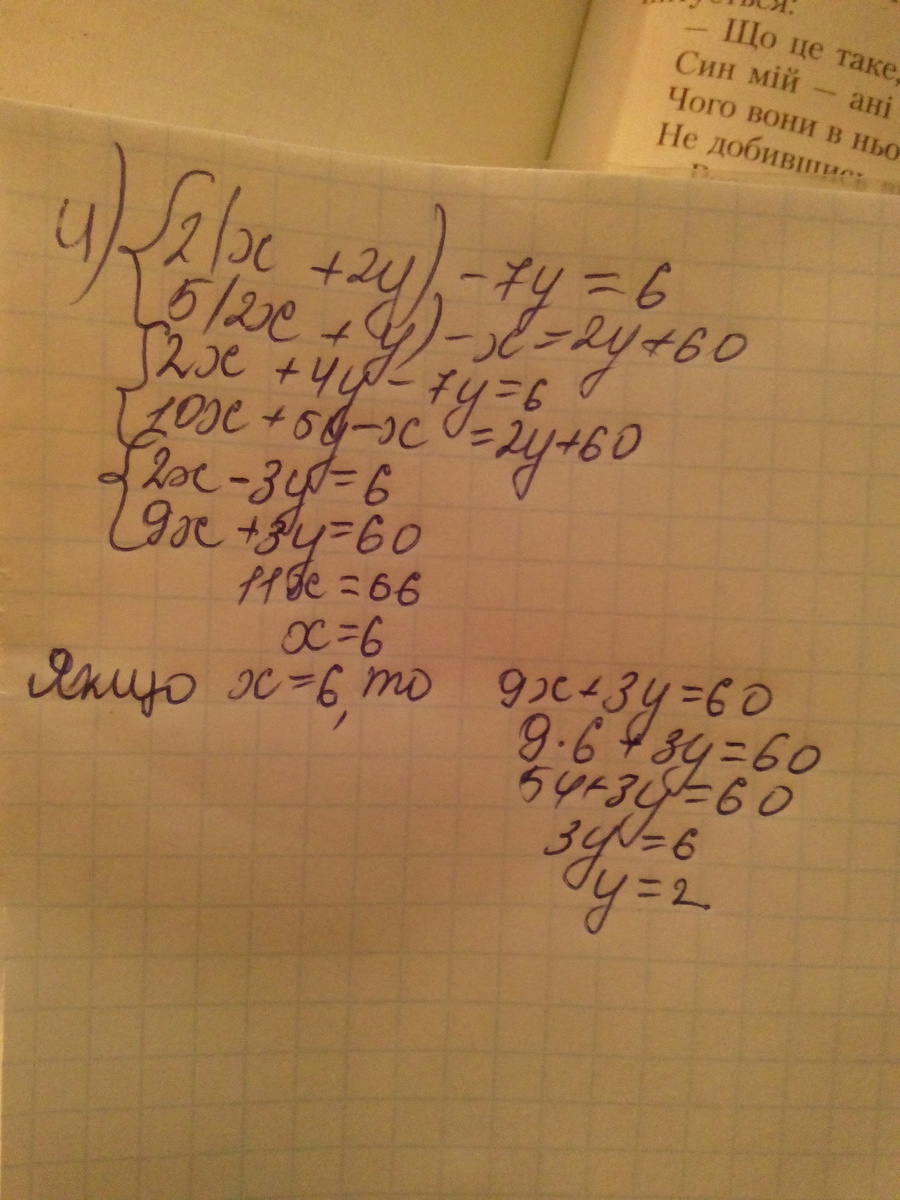 – Що це таке,
Син мій – ані
Чого вони в ньо
Не добившись
4) {2(x + 2y) - 7y = 6
{5(2x + y) - x = 2y + 60
{2x + 4y - 7y = 6
{10x + 5y - x = 2y + 60
{2x - 3y = 6
{9x + 3y = 60
11x = 66
x = 6
Якщо x = 6, то 9x + 3y = 60
9 · 6 + 3y = 60
54 + 3y = 60
3y = 6
y = 2